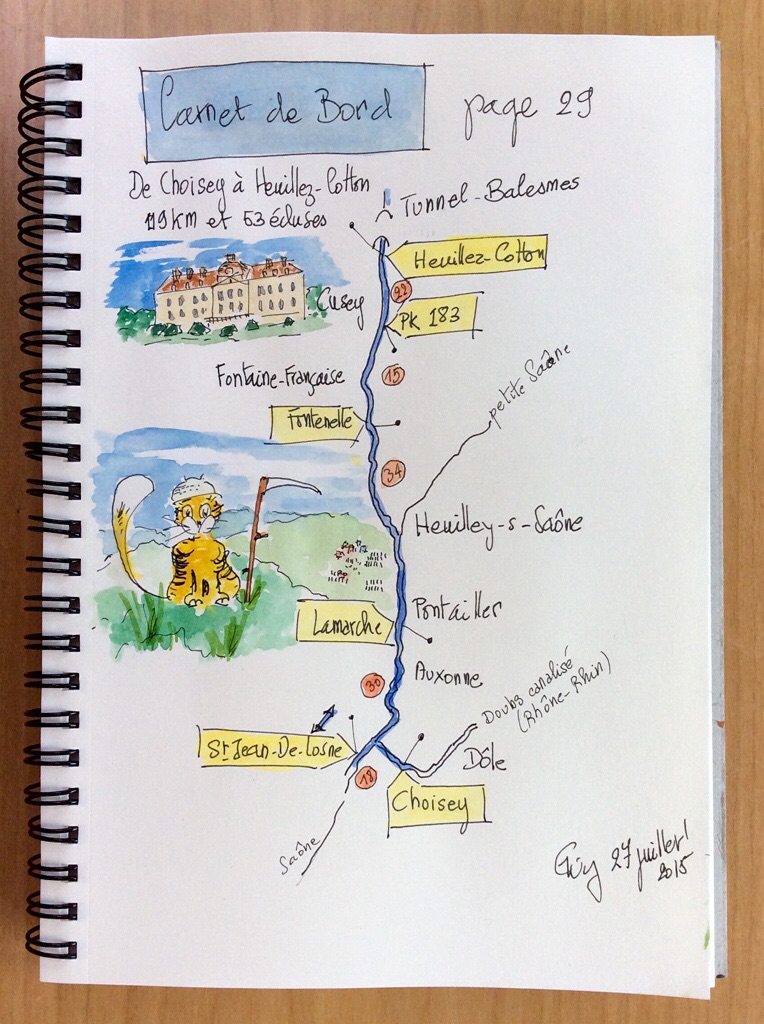 Carnet de Bord
page 29
De Choisey à Heuillez-Cotton
119km et 53 écluses
Tunnel-Balesmes
Heuillez-Cotton
22
Cusey
PK 183
15
Fontaine-Française
petite Saône
Fontenelle
34
Heuilley-s-Saône
Pontailler
Lamarche
Auxonne
30
Doubs canalisé
(Rhône-Rhin)
St Jean-De-Losne
Dôle
18
Choisey
Saône
Guy 27 juillet
2015